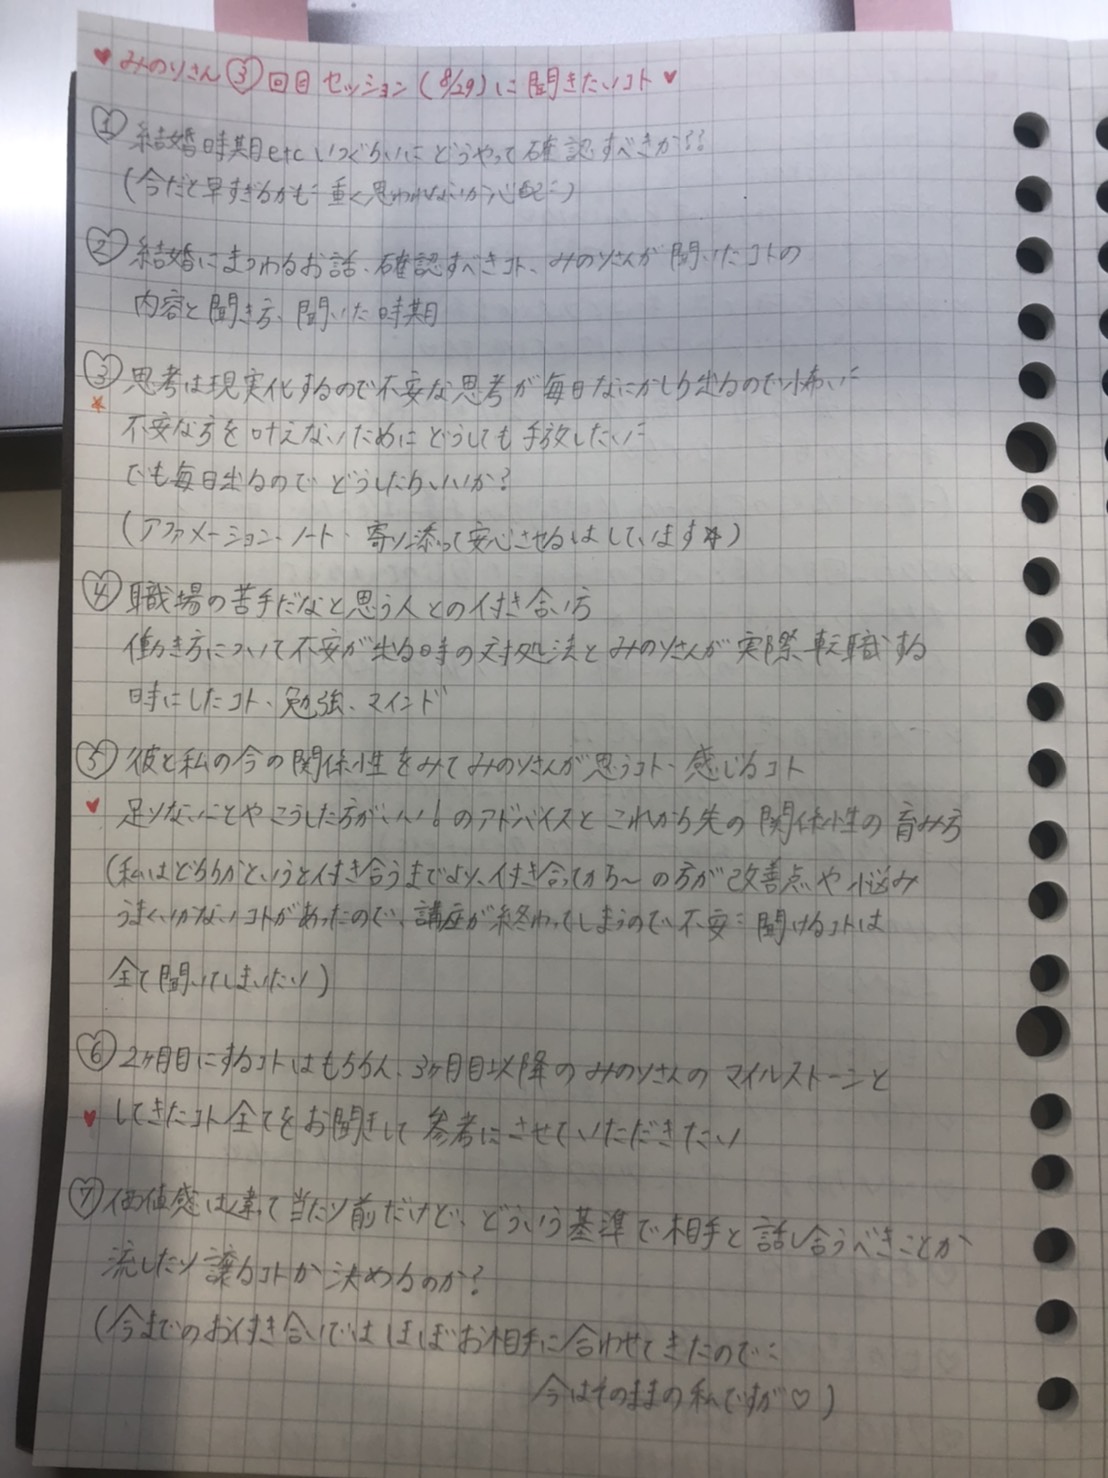 ♥みのりさん③回目セッション(8/29)に聞きたいコト♥
① 結婚時期etcいつぐらいにどうやって確認すべきか??
(今だと早すぎるかも…重く思われないか心配…)
② 結婚にまつわるお話、確認すべきコト、みのりさんが聞いたコトの
内容と聞き方、聞いた時期
③ 思考は現実化するので不安な思考が毎日なにかしら出るので怖い…
不安な方を叶えないためにどうしても手放したい…
でも毎日出るのでどうしたらいいか?
(アファメーション・ノート・寄り添って安心させるはしています☆)
④ 職場の苦手だなと思う人との付き合い方
働き方について不安が出る時の対処法とみのりさんが実際転職する
時にしたコト、勉強、マインド
⑤ 彼と私の今の関係性をみてみのりさんが思うコト・感じるコト
♥ 足りないことやこうした方がいい!のアドバイスとこれから先の関係性の育み方
(私はどちらかというと付き合うまでより、付き合ってから〜の方が改善点や悩み
うまくいかないコトがあったので、講座が終わってしまうので不安…聞けるコトは
全て聞いてしまいたい)
⑥ 2ヶ月目にするコトはもちろん、3ヶ月目以降のみのりさんのマイルストーンと
♥ してきたコト全てをお聞きして参考にさせていただきたい
⑦ 価値感は違って当たり前だけど、どういう基準で相手と話し合うべきことか
流したり譲るコトか決めるのか?
(今までのお付き合いではほぼお相手に合わせてきたので…
今はそのままの私ですが♡)